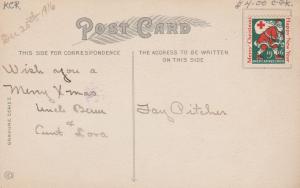 KCR
$4.00 C-DK.
Dec 25th 1916
POST CARD
THIS SIDE FOR CORRESPONDENCE
THE ADDRESS TO BE WRITTEN
ON THIS SIDE
Merry Christmas
Happy New Year
1916
AMERICAN RED CROSS
Wish you a
Merry X-mas
Uncle Benn
&
Aunt Lora
Fay Pitcher
GRAVURE SERIES